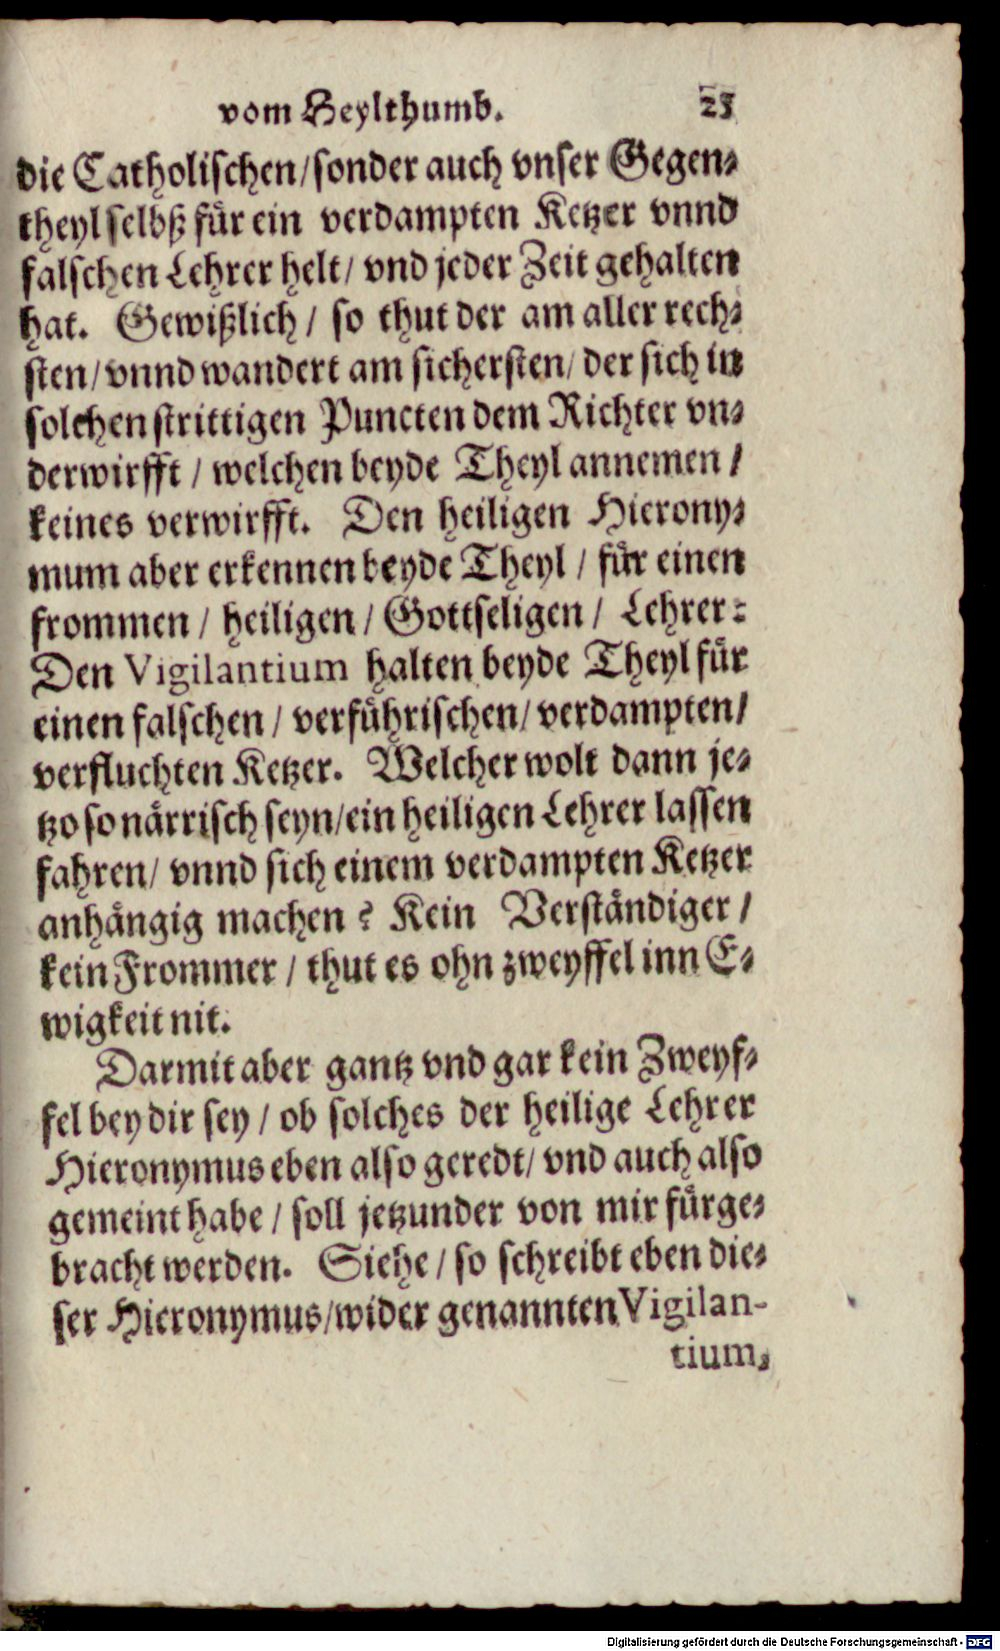 vom Heylthumb. 25
die Catholischen/sonder auch vnser Gegen-
theyl selbß für ein verdampten Ketzer vnnd
falschen Lehrer helt/ vnd jeder Zeit gehalten
hat. Gewißlich / so thut der am aller rech-
sten/ vnnd wandert am sichersten/ der sich in
solchen strittigen Puncten dem Richter vn-
derwirfft / welchen beyde Theyl annemen /
keines verwirfft. Den heiligen Hierony-
mum aber erkennen beyde Theyl / für einen
frommen / heiligen / Gottseligen / Lehrer:
Den Vigilantium halten beyde Theyl für
einen falschen / verführischen/ verdampten/
verfluchten Ketzer. Welcher wolt dann je-
tzo so närrisch seyn/ein heiligen Lehrer lassen
fahren/ vnnd sich einem verdampten Ketzer
anhängig machen ? Kein Verständiger /
kein Frommer / thut es ohn zweyffel inn E-
wigkeit nit.
Darmit aber gantz vnd gar kein Zweyf-
fel bey dir sey / ob solches der heilige Lehrer
Hieronymus eben also geredt/ vnd auch also
gemeint habe / soll jetzunder von mir fürge-
bracht werden. Siehe / so schreibt eben die-
ser Hieronymus/wider genannten Vigilan-
tium,
Digitalisierung gefördert durch die Deutsche Forschungsgemeinschaft - DFG